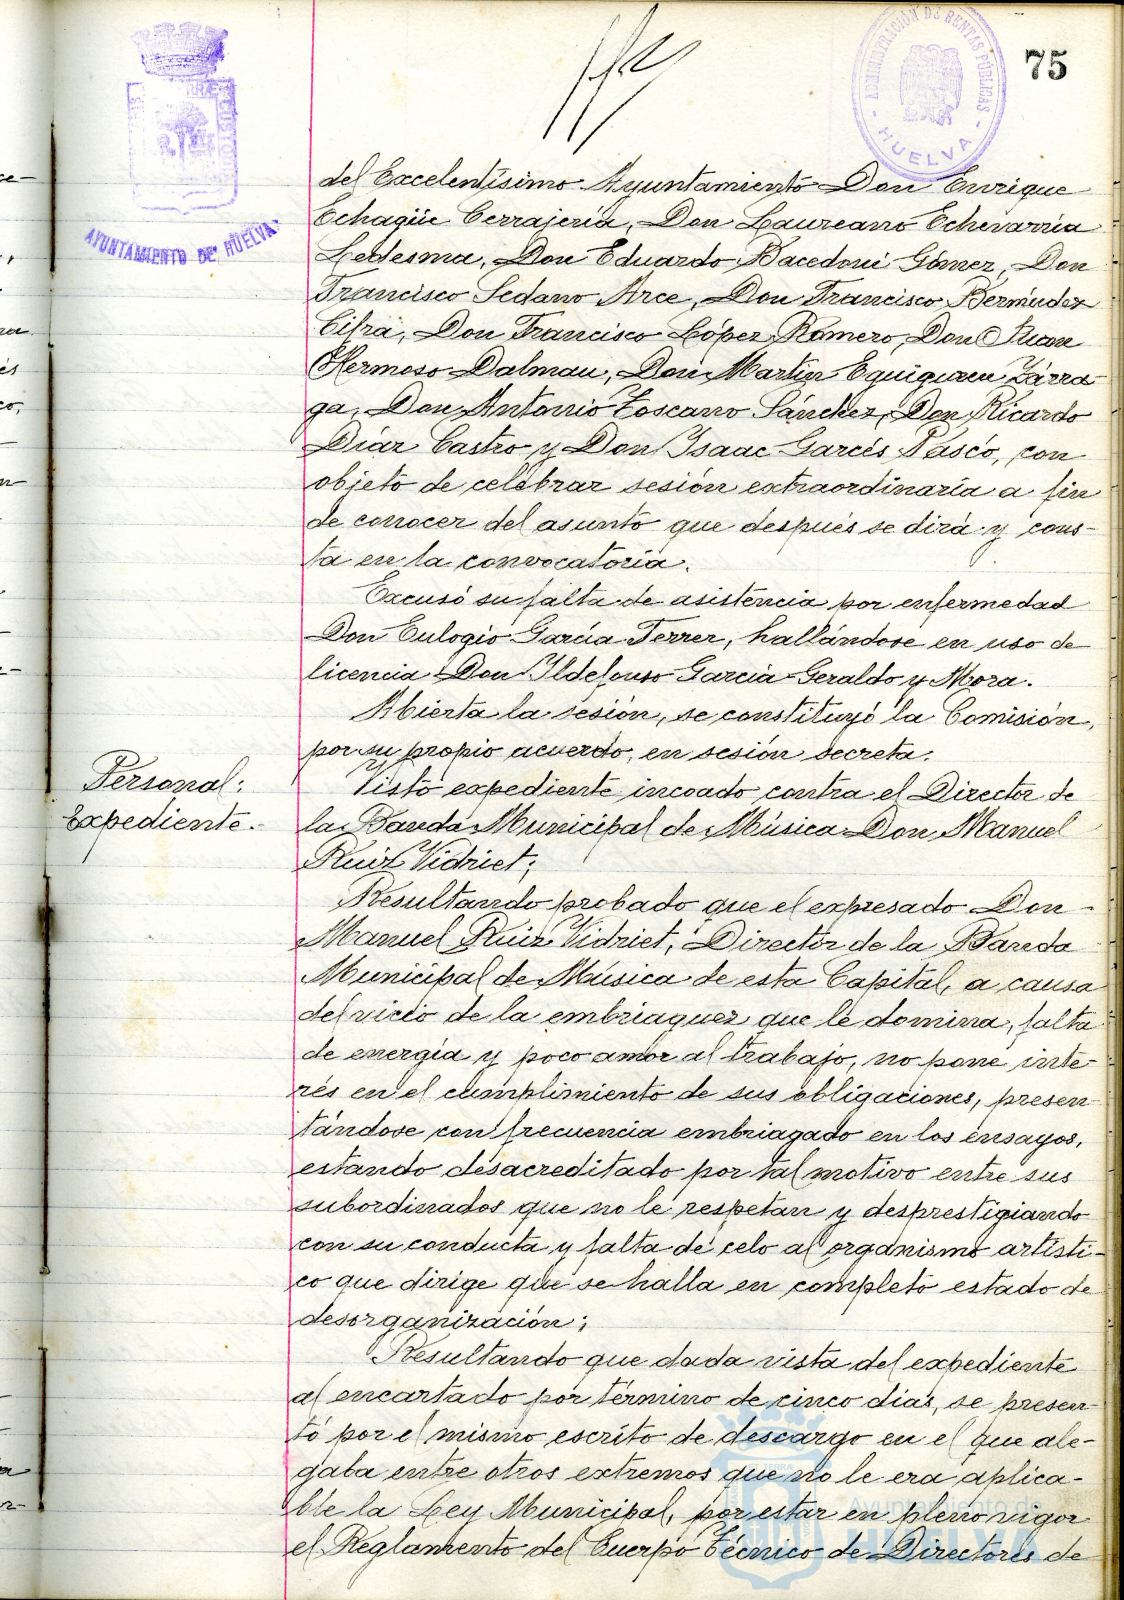 75
ADMINISTRACIÓN DE RENTAS PÚBLICAS
- HUELVA -
AYUNTAMIENTO DE HUELVA
del Excelentísimo Ayuntamiento Don Enrique
Echagüe Cerrajería, Don Laureano Echevarría
Ledesma, Don Eduardo Bacedoni Gómez, Don
Francisco Sedano Arce, Don Francisco Bermúdez
Cifra, Don Francisco López Romero, Don Juan
Hermoso Dalmau, Don Martín Eguiguren Zárra-
ga, Don Antonio Toscano Sánchez, Don Ricardo
Díaz Castro y Don Isaac Garcés Pascó, con
objeto de celebrar sesión extraordinaria a fin
de conocer del asunto que después se dirá y cons-
ta en la convocatoria.
Excusó su falta de asistencia por enfermedad
Don Eulogio García Ferrer, hallándose en uso de
licencia Don Ildefonso García-Geraldo y Mora.
Abierta la sesión, se constituyó la Comisión,
por su propio acuerdo, en sesión secreta.
Personal:
Expediente.-
Visto expediente incoado contra el Director de
la Banda Municipal de Música Don Manuel
Ruiz Vidriet;
Resultando probado que el expresado Don
Manuel Ruiz Vidriet, Director de la Banda
Municipal de Música de esta Capital, a causa
del vicio de la embriaguez que le domina, falta
de energía y poco amor al trabajo, no pone inte-
rés en el cumplimiento de sus obligaciones, presen-
tándose con frecuencia embriagado en los ensayos,
estando desacreditado por tal motivo entre sus
subordinados que no le respetan y desprestigiando
con su conducta y falta de celo al organismo artísti-
co que dirige que se halla en completo estado de
desorganización;
Resultando que dada vista del expediente
al encartado por término de cinco días, se presen-
tó por el mismo escrito de descargo en el que ale-
gaba entre otros extremos que no le era aplica-
ble la Ley Municipal, por estar en pleno vigor
el Reglamento del Cuerpo Técnico de Directores de
Ayuntamiento de
HUELVA